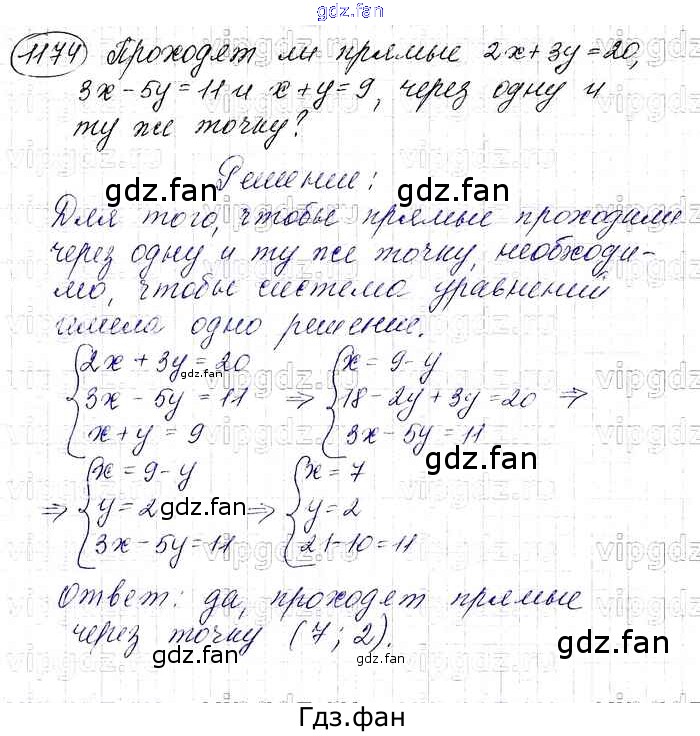 gdz.fan
1174 Проходят ли прямые 2x+3y=20,
3x-5y=11 и x+y=9, через одну и
ту же точку?
Решение:
gdz.fan gdz.fan
Для того, чтобы прямые проходили
через одну и ту же точку, необходи-
мо, чтобы система уравнений
имела одно решение.
{2x+3y=20 {x=9-y
gdz.fan
3x-5y=11 ⇒ 18-2y+3y=20 ⇒
x+y=9 3x-5y=11
gdz.fan
{x=9-y {x=7
⇒ y=2 ⇒ y=2
gdz.fan
3x-5y=11 21-10=11
gdz.fan
Ответ: да, проходят прямые
через точку (7; 2).
gdz.fan
gdz.fan
Гдз.фан